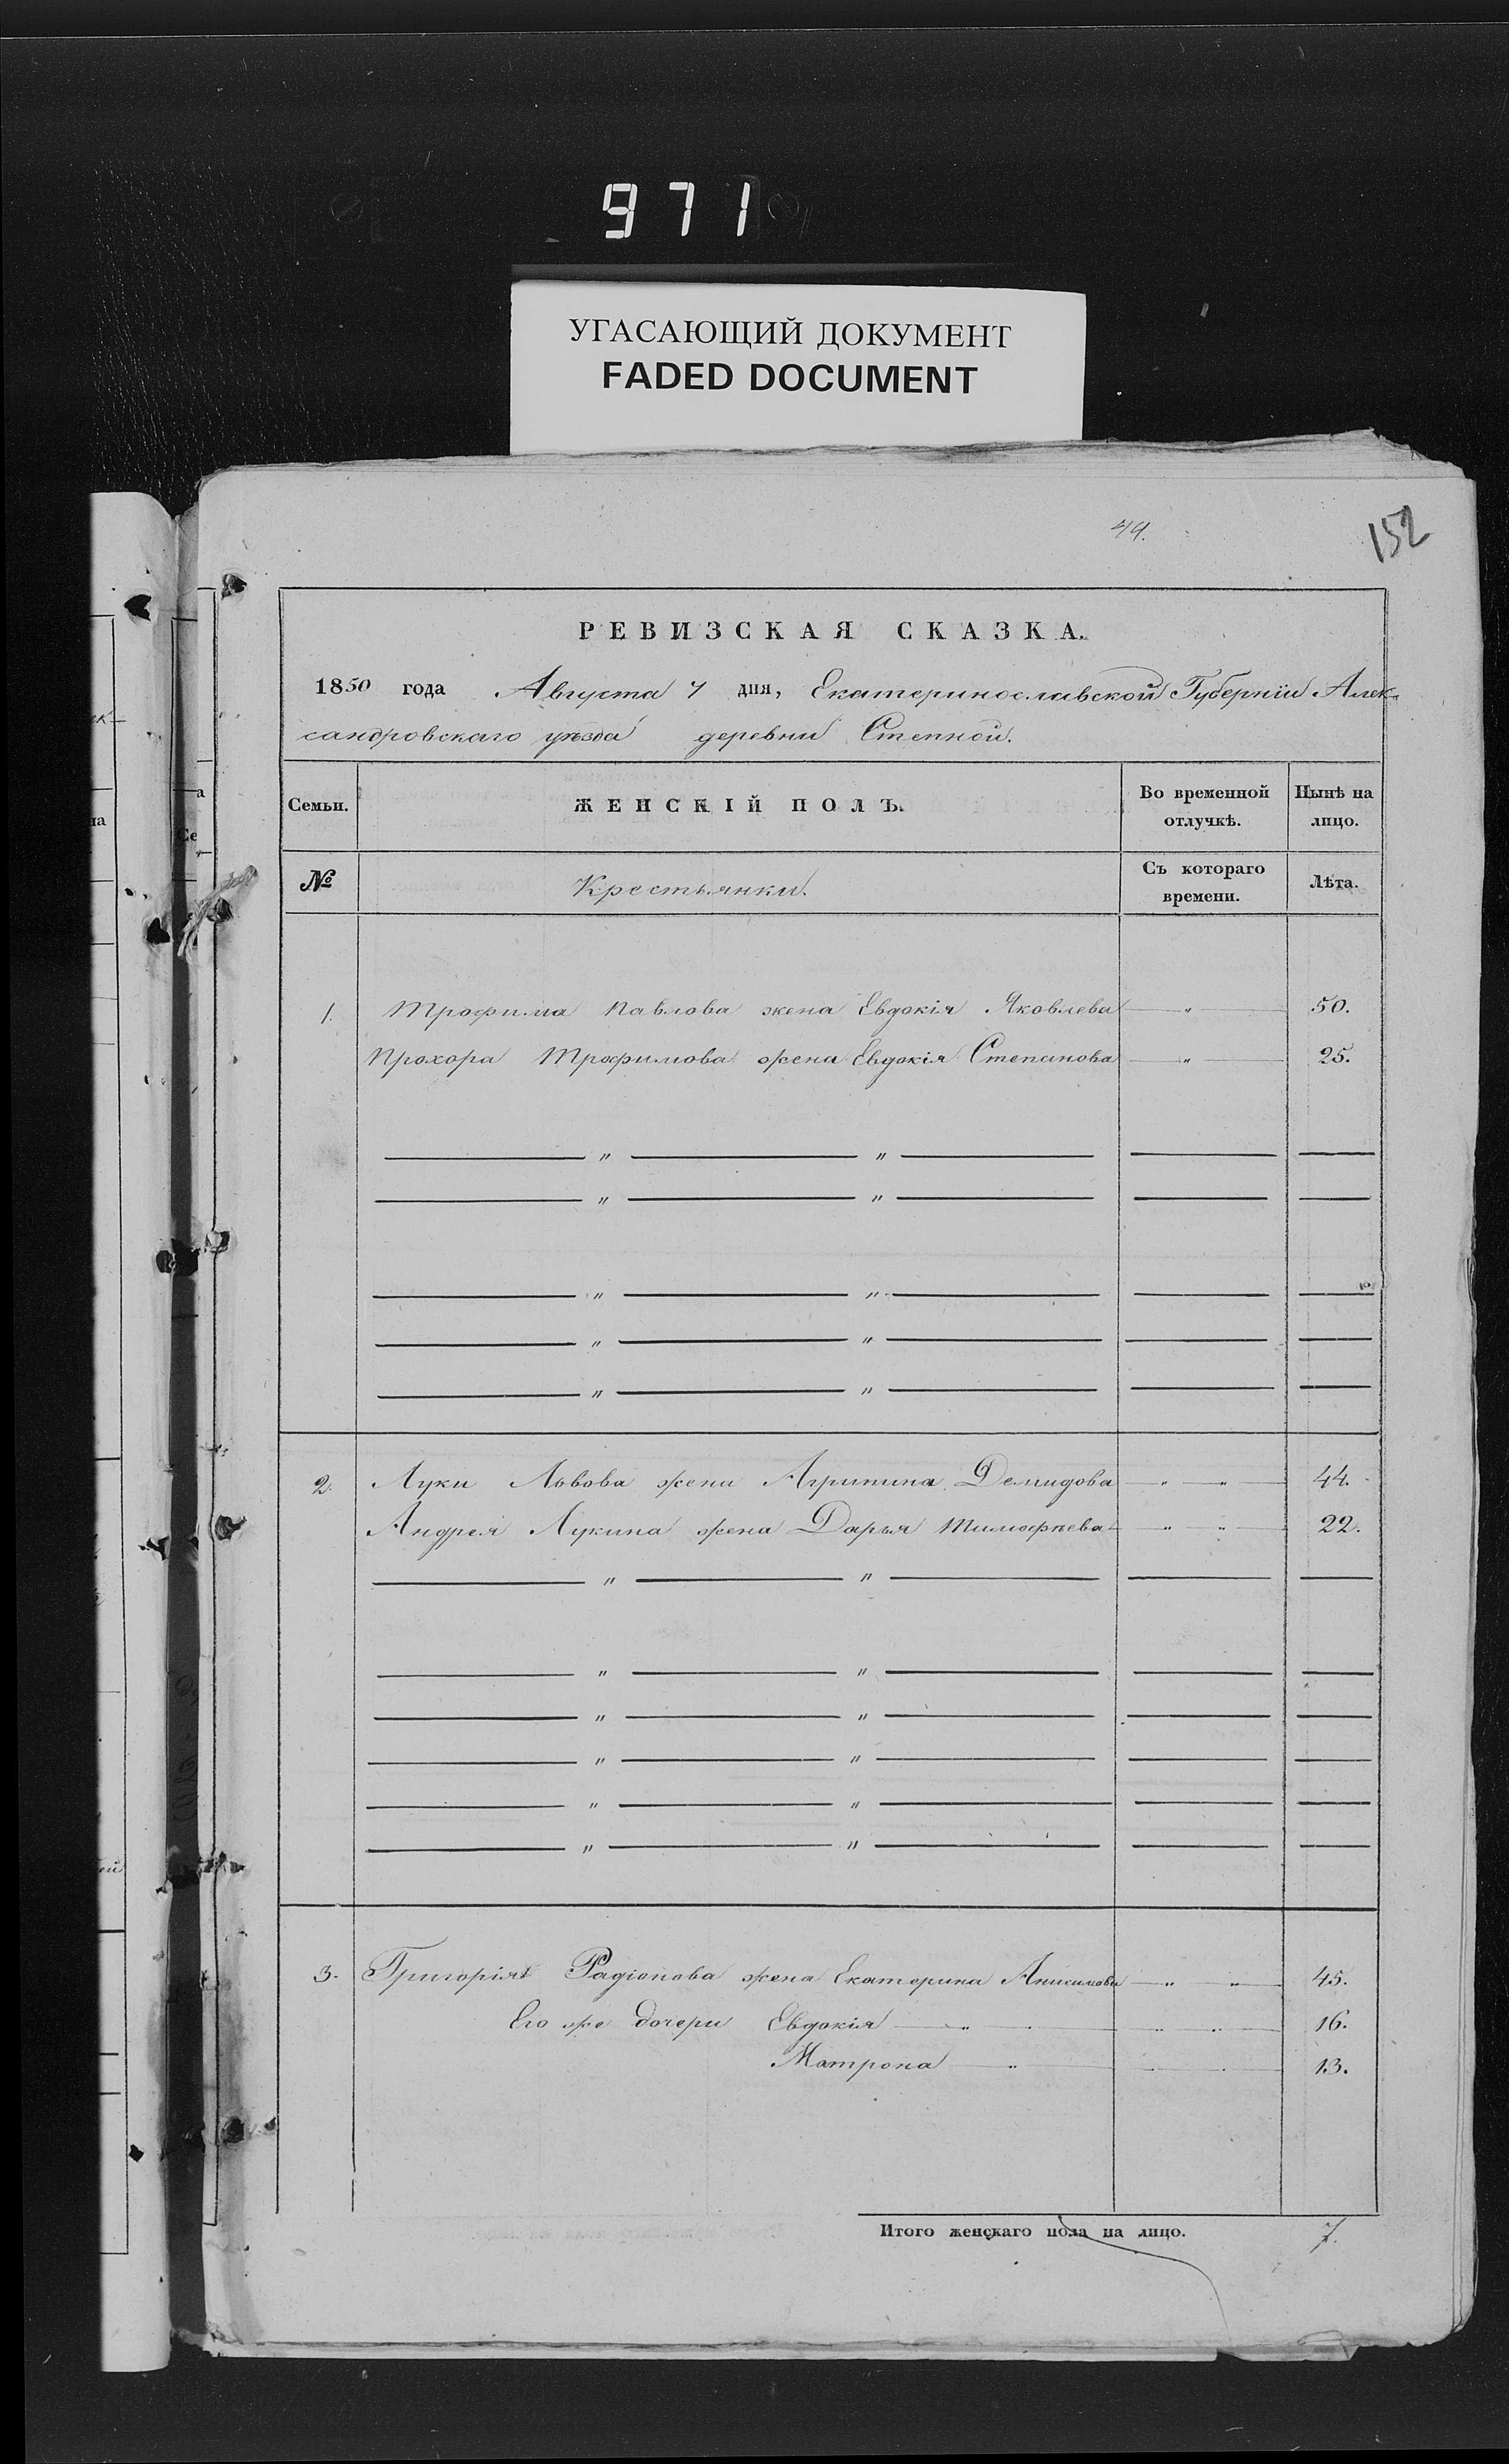 971
УГАСАЮЩИЙ ДОКУМЕНТ
FADED DOCUMENT
44.
152
РЕВИЗСКАЯ СКАЗКА.
1850 года Августа 7 дня, Екатеринославской Губерніи Алек-
сандровскаго уѣзда деревни Степной.
Семьи. ЖЕНСКІЙ ПОЛЪ. Во временной отлучкѣ. Нынѣ на лицо.
№ Крестьянки. Съ котораго времени. Лѣта.
1. Трофима Павлова жена Евдокія Яковлева — " — 50.
Прохора Трофимова жена Евдокія Степанова — " — 25.
2. Луки Львова жена Агрипина Демидова — " — " — 44.
Андрея Лукина жена Дарья Тимофѣева — " — " — 22.
3. Григорія Радіонова жена Екатерина Анисимова — " — " — 45.
Его же дочери Евдокія — " — " — 16.
Матрона — " — 13.
Итого женскаго пола на лицо. 7.